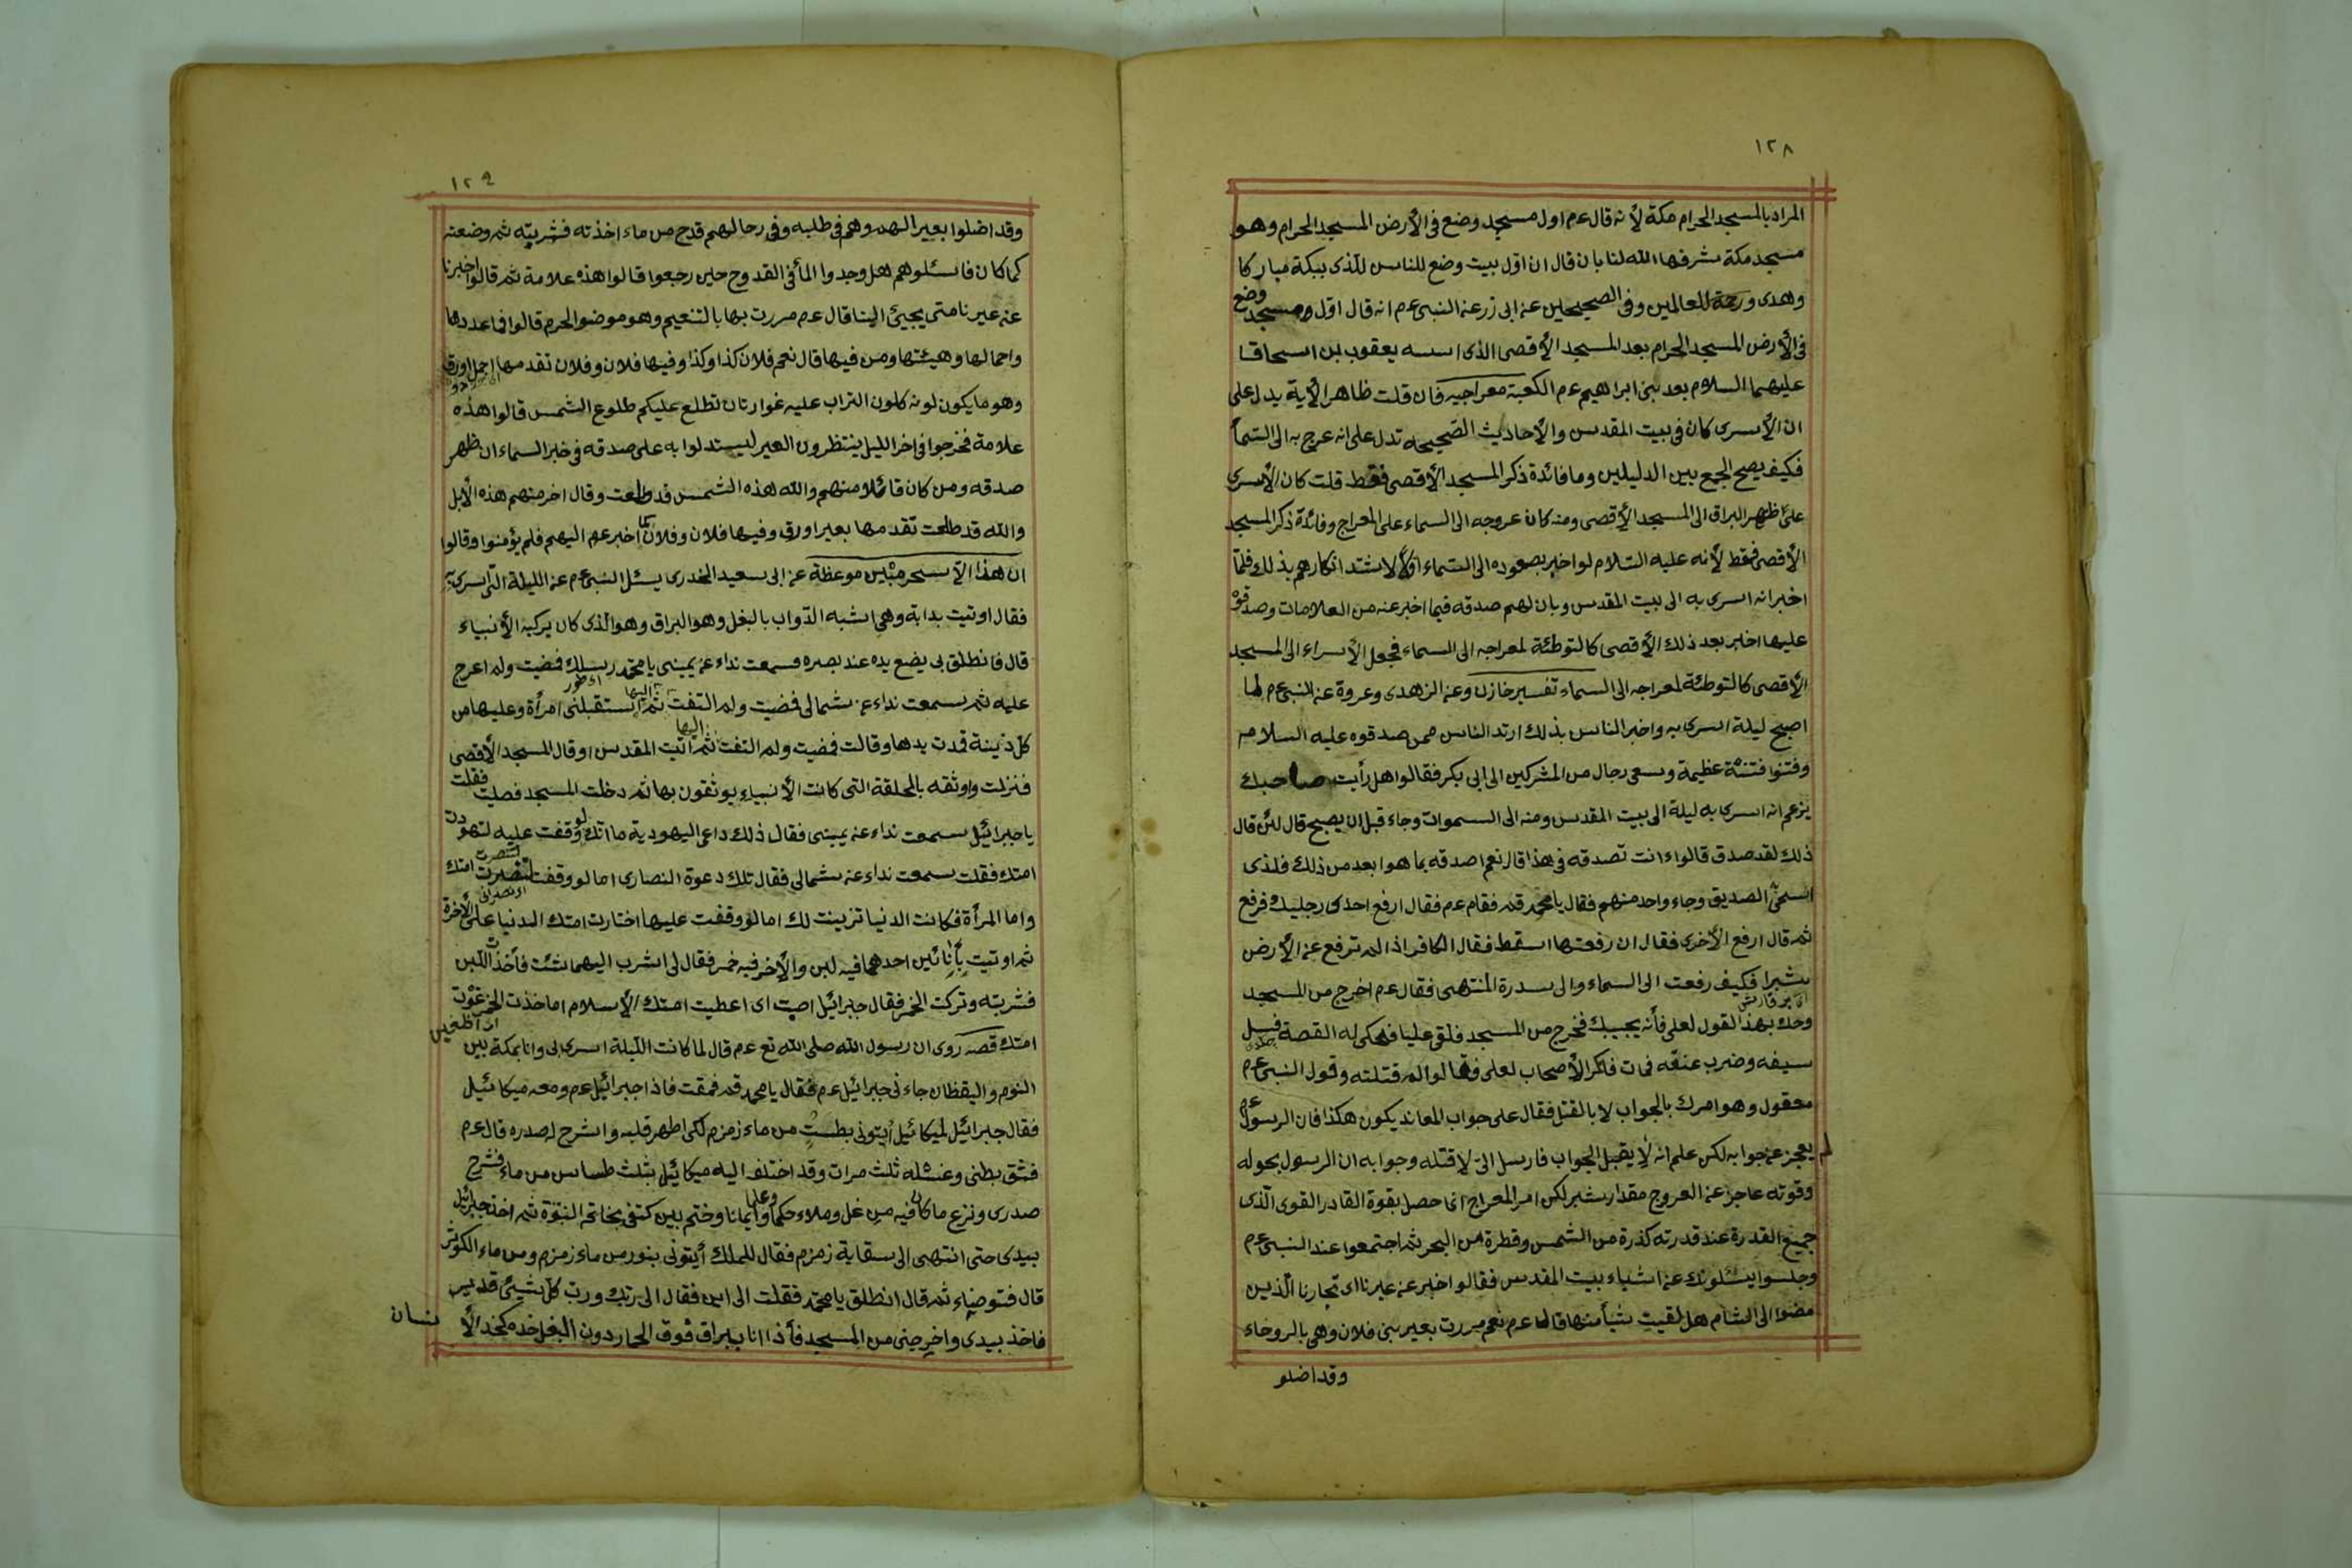 ١٢٨
المراد بالمسجد الحرام مكة لأنه قال عم اول مسجد وضع فى الأرض المسجد الحرام وهو
مسجد مكة شرفها الله لنا بان قال ان اوّل بيت وضع للناس للذى ببكة مباركا
وهدى ورحمة للعالمين وفى الصحيحين عن ابى زر عن النبى عم انه قال اول مسجد وضع
فى الأرض المسجد الحرام بعد المسجد الأقصى الذى اسسه يعقوب بن اسحاقا
عليهما السلام بعد بنى ابراهيم عم الكعبة معراجيه فان قلت ظاهر الأية يدل على
ان الأسرى كان فى بيت المقدس والأحاديث الصّحيحه تدل على انه عرج به الى السّمأ
فكيف يصح الجمع بين الدليلين وما فائدة ذكر المسجد الأقصى فقط قلت كان الأسرى
على ظهر البراق الى المسجد الأقصى ومنه كان عروجه الى السماء على المعراج وفائدة ذكر المسجد
الأقصى فقط لأنه عليه السّلام لو اخبر بصعوده الى السّماء اوّلاً لاشتد انكارهم بذلك فلمّا
اخبر انه اسرى به الى بيت المقدس وبان لهم صدقه فيما اخبر عنه من العلامات وصدقوْ
عليها اخبر بعد ذلك الأقصى كالتوطئة لمعراجه الى السماء فجعل الأسراء الى المسجد
الأقصى كالتوطئة لمعراجه الى السماء تفسير خازن وعن الزهدى وعروة عن النبى عم لما
اصبح ليلة اسرى به واخبر الناس بذلك ارتد الناس ممن صدقوه عليه السلام
وفتنوا فتنة عظيمة وسعى رجال من المشركين الى ابى بكر فقالوا هل رأيت صاحبك
يزعم انه اسرى به ليلة الى بيت المقدس ومنه الى السموات وجاء قبل ان يصبح قال لئن قال
ذلك لقد صدق قالوا ءانت تصدقه فى هذا قال نعم اصدقه بما هو ابعد من ذلك فلذى
اسمى الصديق وجاء واحد منهم فقال يا محمد قم فقام عم فقال ارفع احدى رجليك فرفع
ثم قال ارفع الأخرى فقال ان رفعتها اسقط فقال الكافر اذا لم ترفع عن الأرض
شبرا فكيف رفعت الى السماء والى سدرة المنتهى فقال عم اخرج من المسجد
وحك بهذا القول لعلى فأنه يجيبك فخرج من المسجد فلقى عليا فحكى له القصة فسل
سيفه وضرب عنقه فمات فانكر الأصحاب لعلى وقالوا لم قتلته وقول النبى عم
معقول وهو امرك بالجواب لا بالقتل فقال على جواب المعاند يكون هكذا فان الرسول عم
لم يعجز عن جوابه لكن علم انه لا يقبل الجواب فارسل الىّ لاقتله وجوابه ان الرسول بحوله
وقوته عاجز عن العروج مقدار شبر لكن امر المعراج انما حصل بقوة القادر القوى الّذى
جميع القدرة عند قدرته كذرة من الشمس وقطرة من البحر ثم اجتمعوا عند النبى عم
وجلسوا يسئلونك عن اشياء بيت المقدس فقالوا اخبر عن عيرنا اى تجارنا الّذين
مضوا الى الشام هل لقيت شيأ منها قال عم نعم مررت بعير بنى فلان وهى بالروحاء
وقد اضلو
١٢٩
وقد اضلوا بعيرا لهم وهم فى طلبه وفى رحالهم قدح من ماء اخذته فشربته ثم وضعته
كما كان فاسئلوهم هل وجدوا المأ فى القدوح حين رجعوا قالوا هذه علامة ثم قالوا اخبرنا
عن عيرنا متى يجيئ الينا قال عم مررت بها بالتنعيم وهو موضو الحرم قالوا فاعددها
واحمالها وهيئتها ومن فيها قال نعم فلان كذا وكذا وفيها فلان وفلان تقدمها اجمل اورق
وهو ما يكون لونه كلون التراب عليه غوارتان تطلع عليكم طلوع الشمس قالوا هذه
علامة فخرجوا فى اخر الليل ينتظرون العير ليستدلوا به على صدقه فى خبر السماء ان ظهر
صدقه ومن كان قائلا منهم والله هذه الشمس قد طلعت وقال اخر منهم هذه الأبل
والله قد طلعت تقدمها بعير اورق وفيها فلان وفلان كما اخبر عم اليهم فلم يؤمنوا وقالوا
ان هذا الاّ سحر مبين موعظة عن ابى سعيد الخدرى يسئل النبى عم عن الليلة الّتى اسرى به
فقال اوتيت بدابة وهى اشبه الدّواب بالبغل وهو البراق وهو الّذى كان يركبه الأنبياء
قال فانطلق بى يضع يده عند بصره فسمعت نداء عن يمينى يا محمّد رسلك فمضيت ولم اعرج
عليه ثم سمعت نداء عن شمالى فمضيت ولم التفت اليها ثم استقبلنى امرأة وعليها من
كلّ زينة قدت يدها وقالت فمضيت ولم التفت اليها ثم اتيت المقدس او قال المسجد الأقصى
فنزلت واوثقه بالحلقة التى كانت الأنبياء يوثقون بها ثم دخلت المسجد فصليت فقلت
يا جبرائيل سمعت نداء عن يمينى فقال ذلك داعى اليهودية ما انك لو وقفت عليه لتهودت
امتك فقلت سمعت نداء عن شمالى فقال تلك دعوة النصارى اما لو وقفت لتنصرت امتك
واما المرأة فكانت الدنيا تزينت لك اما لو وقفت عليها اختارت امتك الدنيا على الأخرة
ثم اوتيت بأنائين احدهما فيه لبن والأخر فيه خمر فقال لى اشرب ايهما شئت فأخذت اللّبن
فشربته وتركت الخمر فقال جبرائيل اصبت اى اعطيت امتك الأسلام اما خذت الخمر غوْت
امتك قصه روى ان رسول الله صلى الله تع عم قال لما كانت اللّيلة اسرى بى وانا بمكة بين
النوم واليقظان جاءنى جبرائيل عم فقال يا محمد قم فمقت فاذا جبرائيل عم ومعه ميكائيل
فقال جبرائيل لميكائيل أيتونى بطست من ماء زمزم لكى اطهر قلبه واشرح له صدره قال عم
فشق بطنى وغسله ثلث مرات وقد اختلف اليه ميكائيل بثلث طساس من ماء فشرح
صدرى ونزع ما كان فيه من غل وملاء حكما وعلما وايمانا وختم بين كتفى بخاتم النبوّة ثم اخذ جبرائيل
بيدى حتى انتهى الى سقاية زمزم فقال للملك أيتونى بنور من ماء زمزم ومن ماء الكوثر
قال فتوضاء ثم قال انطلق يا محمّد فقلت الى اين فقال الى ربّك وربّ كلّ شيئ قدير
فاخذ بيدى واخرجنى من المسجد فأذا انا ببراق فوق الحمار دون البغل خده كخد الأ
نسان